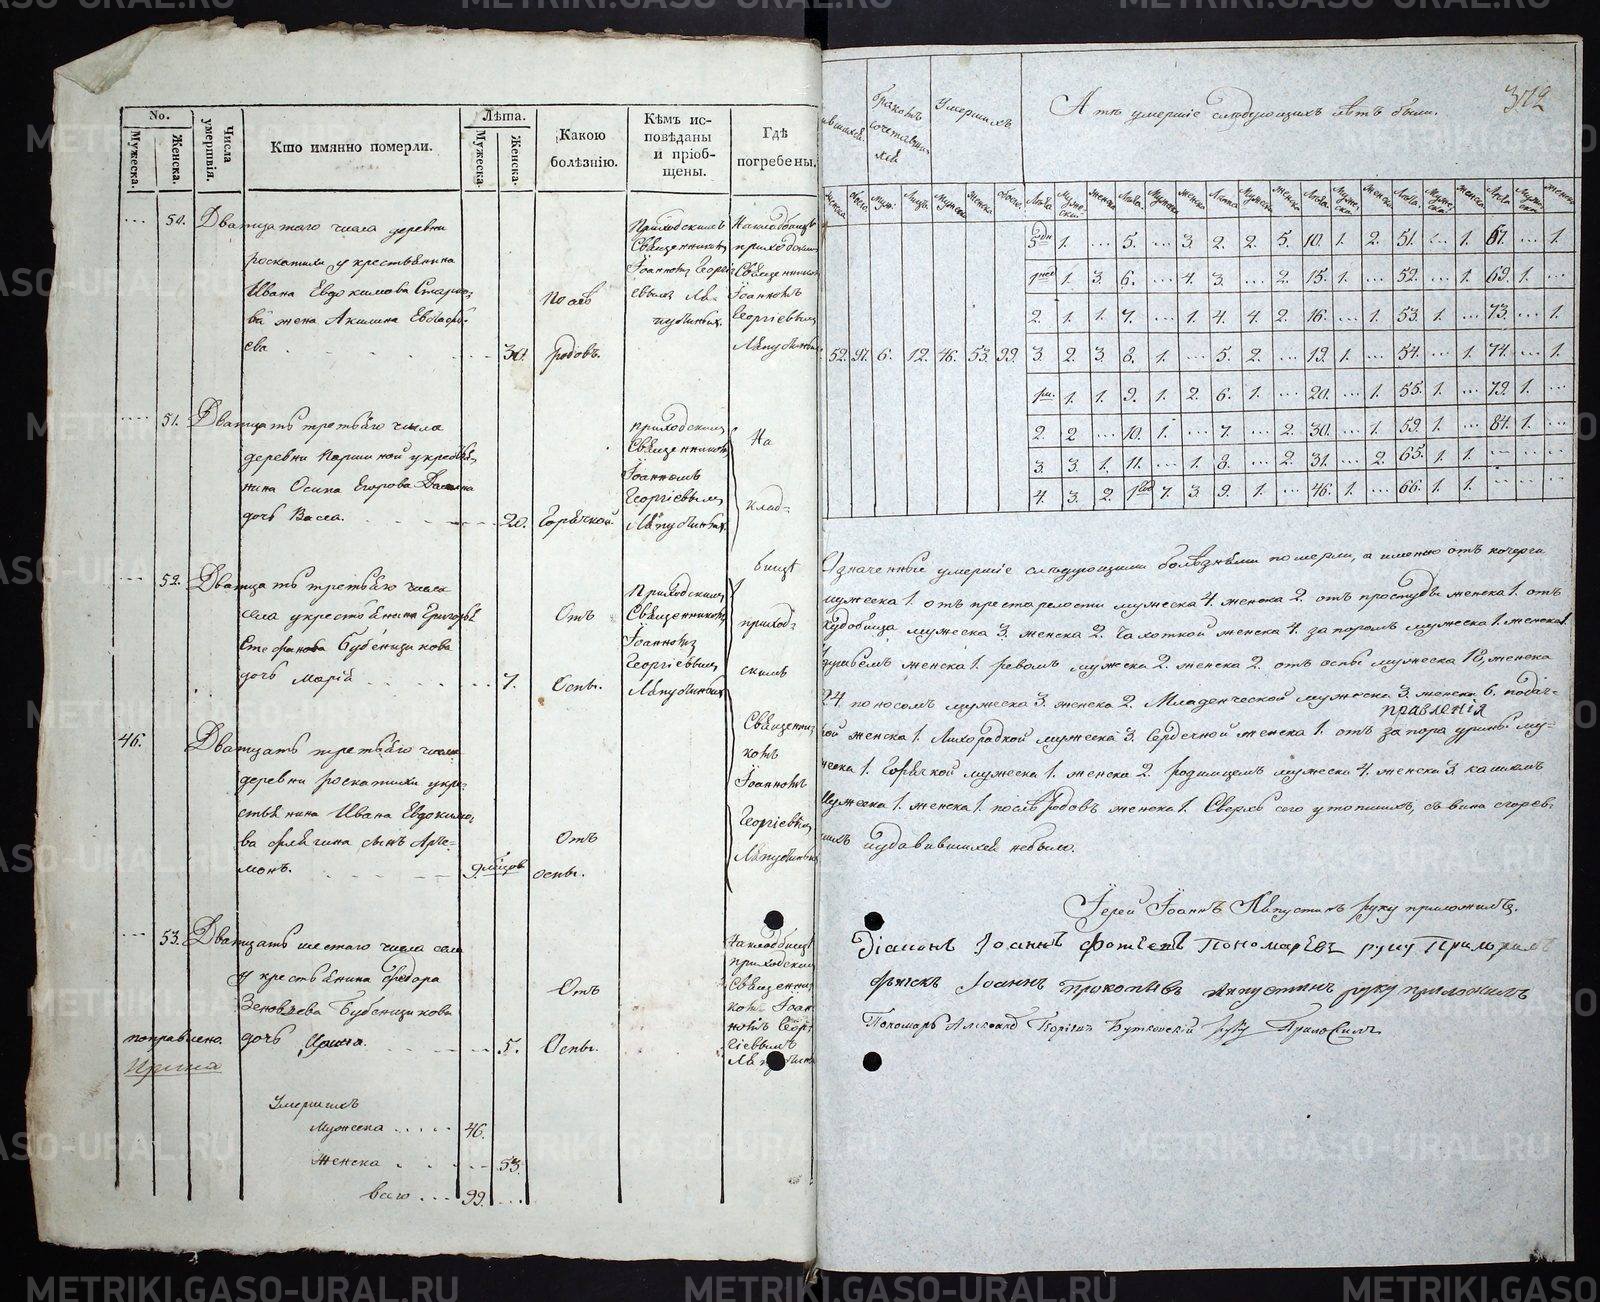 No.
Мужеска.
Женска.
Числа умертвія.
Кто имянно померли.
Лѣта.
Мужеска.
Женска.
Какою
болѣзнію.
Кѣмъ ис-
повѣданы
и пріоб-
щены.
Гдѣ
погребены.
50. Дватцатаго числа деревни
роскатихи у крестьянина
Ивана Евдокимова
ва жена Акилина
ева 30. После родовъ.
Приходскимъ
Священникомъ
Іоанномъ Георгі
евымъ Ля-
пустинымъ.
На кладбищѣ
приходскимъ
Священникомъ
Іоанномъ
Георгіевымъ
Ляпустинымъ
51. Дватцать третьяго числа
деревни у крестья-
нина Осипа Егорова
дочь Васса. 20. Горячкой.
приходскимъ
Священникомъ
Іоанномъ
Георгіевымъ
Ляпустинымъ
На
клад-
бищѣ
приход-
скимъ
Священни-
комъ
Іоанномъ
Георгіевымъ
Ляпустинымъ
52. Дватцать третьяго числа
села у крестьянина Григорья
Стефанова Бубенщикова
дочь Марія 7. Отъ Оспы.
Приходскимъ
Священникомъ
Іоанномъ
Георгіевымъ
Ляпустинымъ
46. Дватцать третьяго числа
деревни роскатихи у кре-
стьянина Ивана Евдокимо-
ва сынъ Арте-
монъ. 9. мѣсцов Отъ оспы.
53. Дватцать шестаго числа села
у крестьянина Федора
Зеновьева Бубенщикова
дочь Ирина. 5. Отъ Оспы.
На кладбищѣ
приходскимъ
Священни-
комъ Іоан-
номъ Геор-
гіевымъ
поправлено.
Ирина
Умершихъ
Мужеска 46.
Женска 53.
всего 99.
372
бракомъ
сочетавших
ся
Умершихъ
А тѣ умершіе слѣдующихъ лѣтъ были.
5 дн 1. ... 5. ... 3. 2. 2. 5. 10. 1. 2. 51. ... 1. 67. ... 1.
1 нед 1. 3. 6. ... 4. 3. ... 2. 15. 1. ... 52. ... 1. 69. 1. ...
2. 1. 1. 7. ... 1. 4. 4. 2. 16. ... 1. 53. 1. ... 73. ... 1.
52. 97. 6. 12. 46. 53. 99. 3. 2. 3. 8. 1. ... 5. 2. ... 19. 1. ... 54. ... 1. 74. ... 1.
1 1. 1. 9. 1. 2. 6. 1. ... 20. ... 1. 55. 1. ... 79. 1. ...
2. 2 ... 10. 1. ... 7. ... 2. 30. ... 1. 59. 1. ... 84. 1. ...
3. 3. 1. 11. ... 1. 8. ... 2. 31. ... 2. 65. 1. 1. ...
4. 3. 2. 1 год 7. 3. 9. 1. ... 46. 1. ... 66. 1. 1. ...
Означенные умершіе слѣдующими болѣзньми померли, а именно отъ
мужеска 1. отъ престарелости мужеска 4. женска 2. отъ простуды женска 1. отъ
мужеска 3. женска 2. Чахоткой женска 4. запоромъ мужеска 1. женска 1.
женска 1. ревомъ мужеска 2. женска 2. отъ оспы мужеска 18, женска
24. поносомъ мужеска 3. женска 2. Младенческой мужеска 3. женска 6. падуч-
правленія
ой женска 1. Лихорадкой мужеска 3. Сердечной женска 1. отъ запора урины му-
жеска 1. Горячкой мужеска 1. женска 2. родимцемъ мужеска 4. женска 3. кашлемъ
Мужеска 1. женска 1. послѣ родовъ женска 1. Сверхъ сего утопшихъ, съ вина сгорев-
шихъ и удавившихся небыло.
Іерей Іоаннъ Ляпустинъ руку приложилъ.
Діаконъ Іоаннъ Фотіевъ Пономаревъ руку Приложилъ
Іоаннъ Прокопьевъ Ляпустинъ руку приложилъ
Пономарь Александ Георгій Бутковскій руку Приложилъ
METRIKI.GASO-URAL.RU